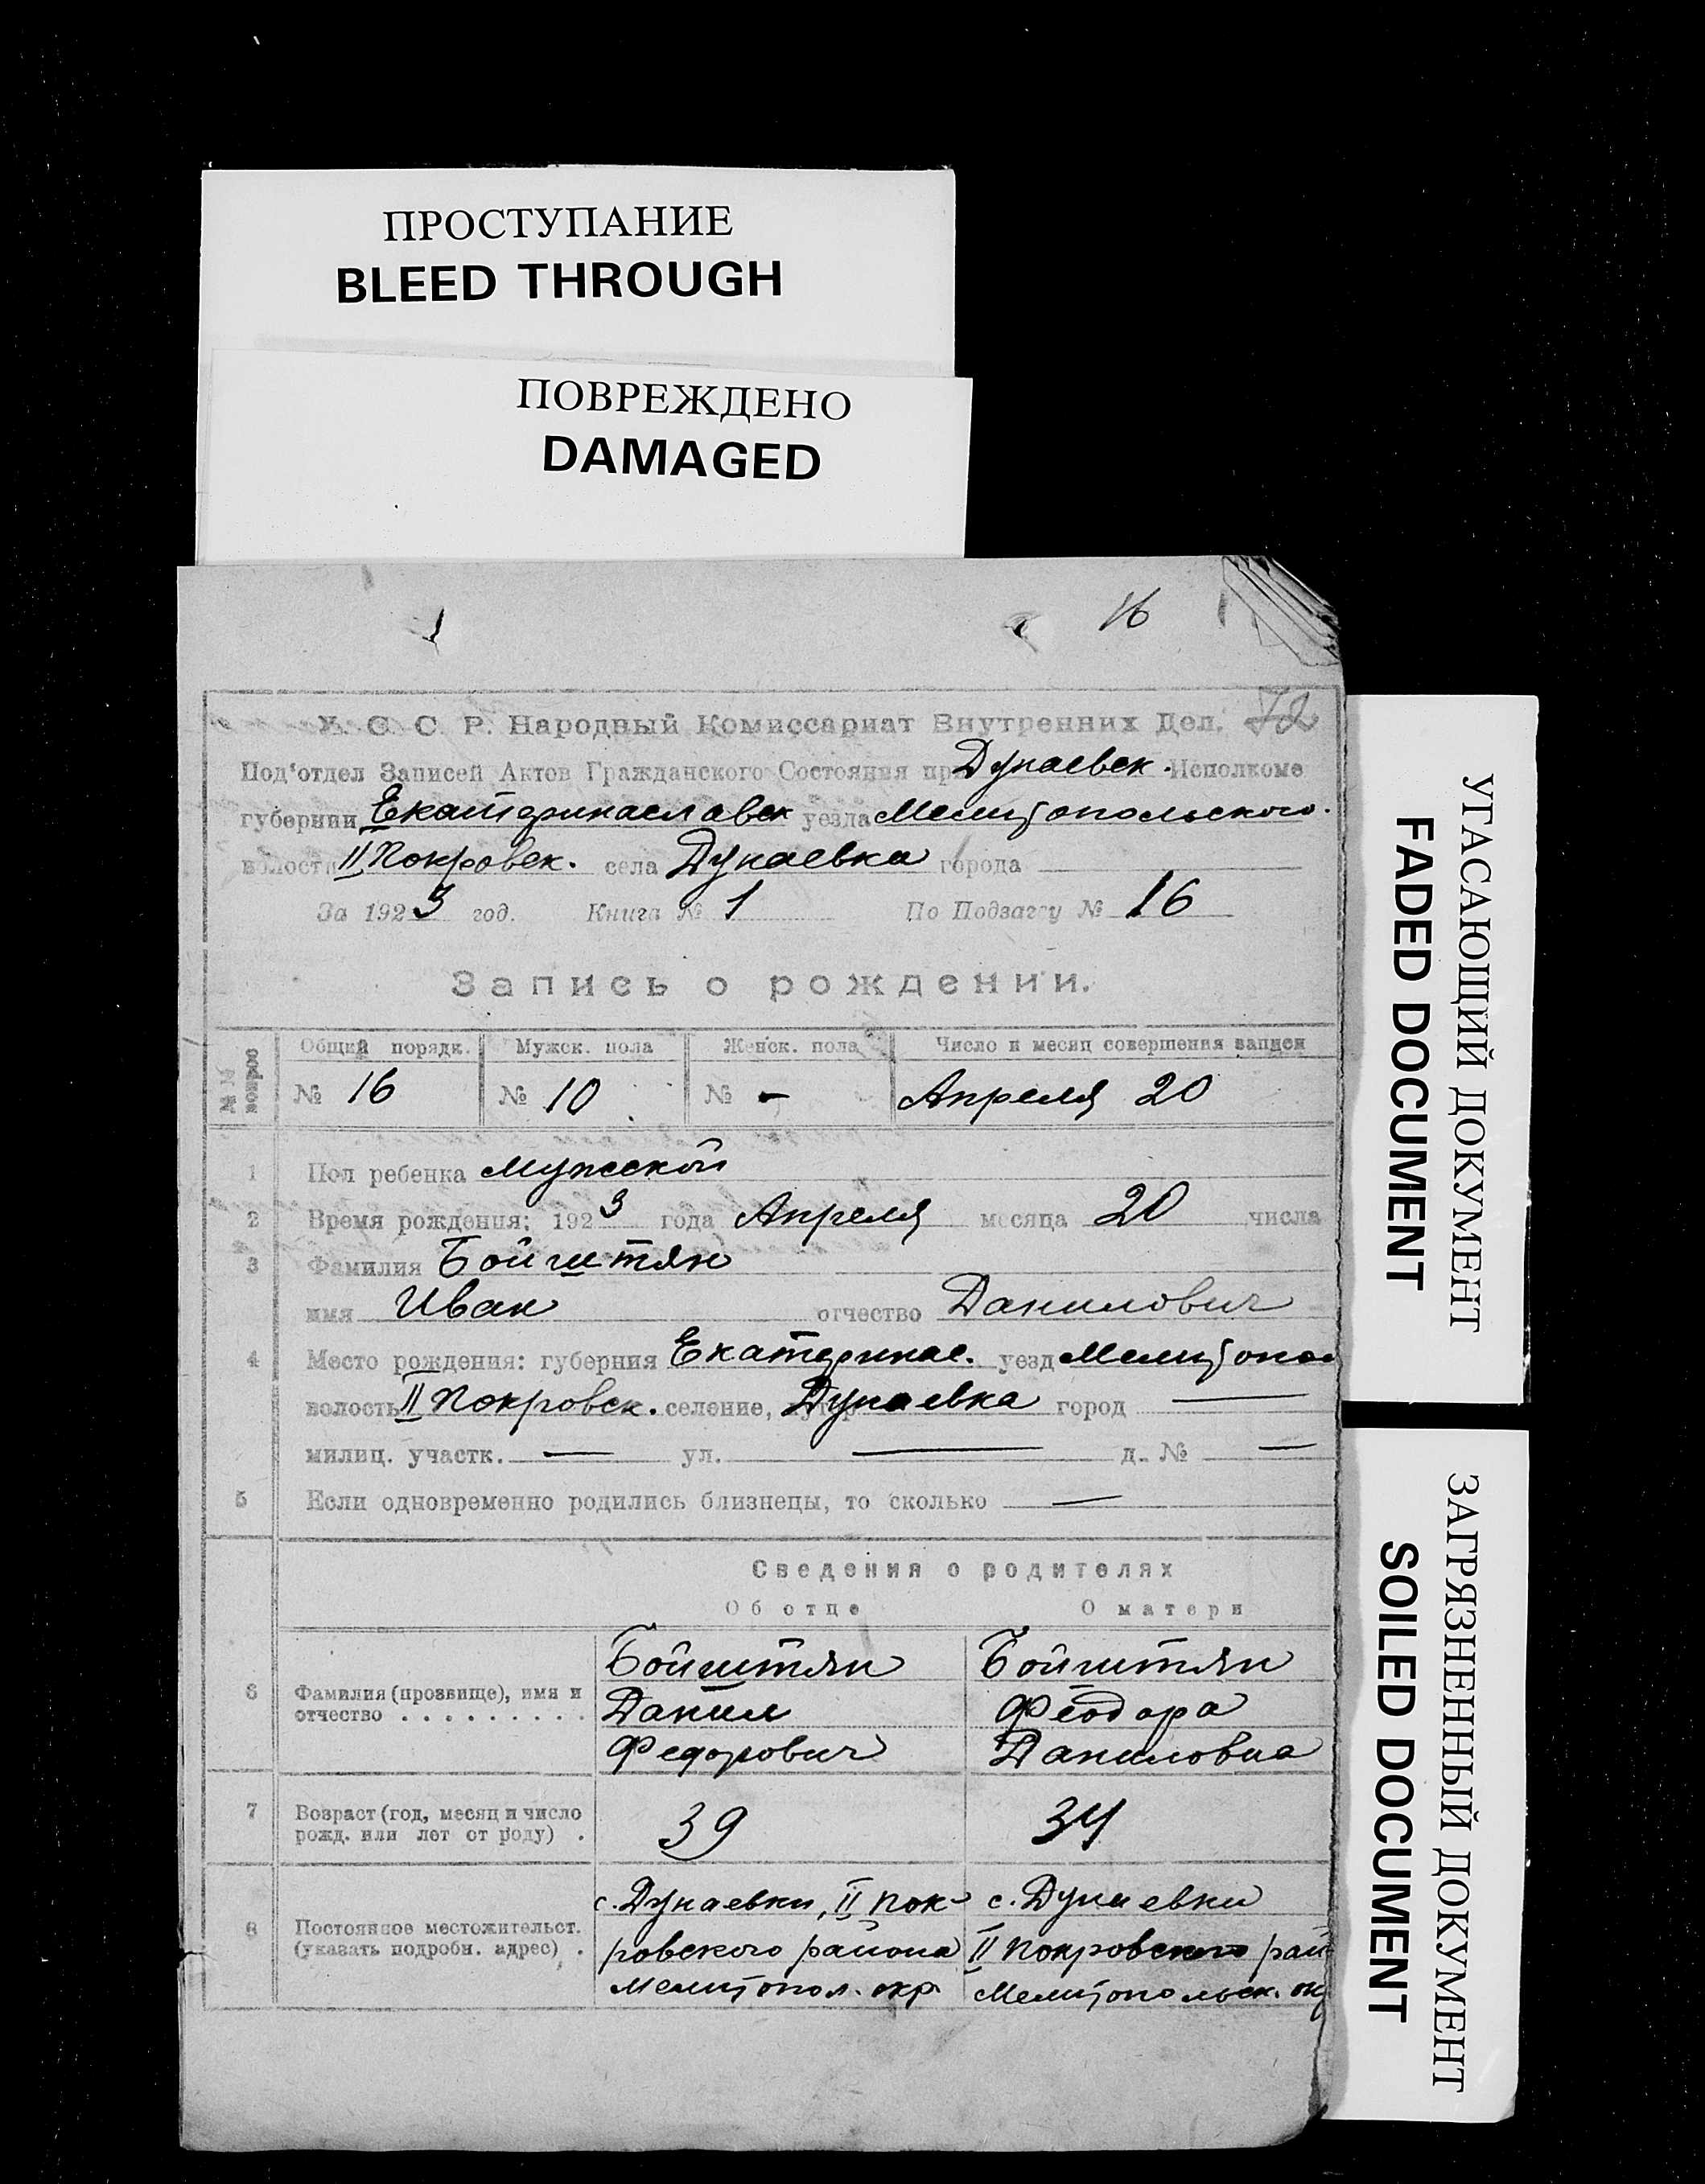 ПРОСТУПАНИЕ
BLEED THROUGH
ПОВРЕЖДЕНО
DAMAGED
16
72
У. С. С. Р. Народный Комиссариат Внутренних Дел.
Под'отдел Записей Актов Гражданского Состояния при Дунаевск. Исполкоме
губернии Екатеринаславск уезда Мелитопольского.
волости II Покровск. села Дунаевка города
За 1923 год. Книга № 1 По Подзагсу № 16
Запись о рождении.
№№ вопрос
Общий порядк. Мужск. пола Женск. пола Число и месяц совершения записи
№ 16 № 10 № - Апреля 20
1 Пол ребенка мужской
2 Время рождения: 1923 года Апреля месяца 20 числа
3 Фамилия Бойштян
имя Иван отчество Данилович
4 Место рождения: губерния Екатеринас. уезд Мелитопол
волость II Покровск. селение, хутор Дунаевка город —
милиц. участк. — ул. — д. № —
5 Если одновременно родились близнецы, то сколько —
Сведения о родителях
Об отце О матери
6 Фамилия (прозвище), имя и отчество . . . . . . . . .
Бойштян
Данил
Федорович
Бойштян
Феодора
Даниловна
7 Возраст (год, месяц и число рожд. или лет от роду) .
39 34
8 Постоянное местожительст. (указать подробн. адрес) .
с. Дунаевки, II Пок-
ровского района
Мелитопол. окр.
с. Дунаевки
II Покровского рай
Мелитопольск. ок
УГАСАЮЩИЙ ДОКУМЕНТ
FADED DOCUMENT
ЗАГРЯЗНЕННЫЙ ДОКУМЕНТ
SOILED DOCUMENT